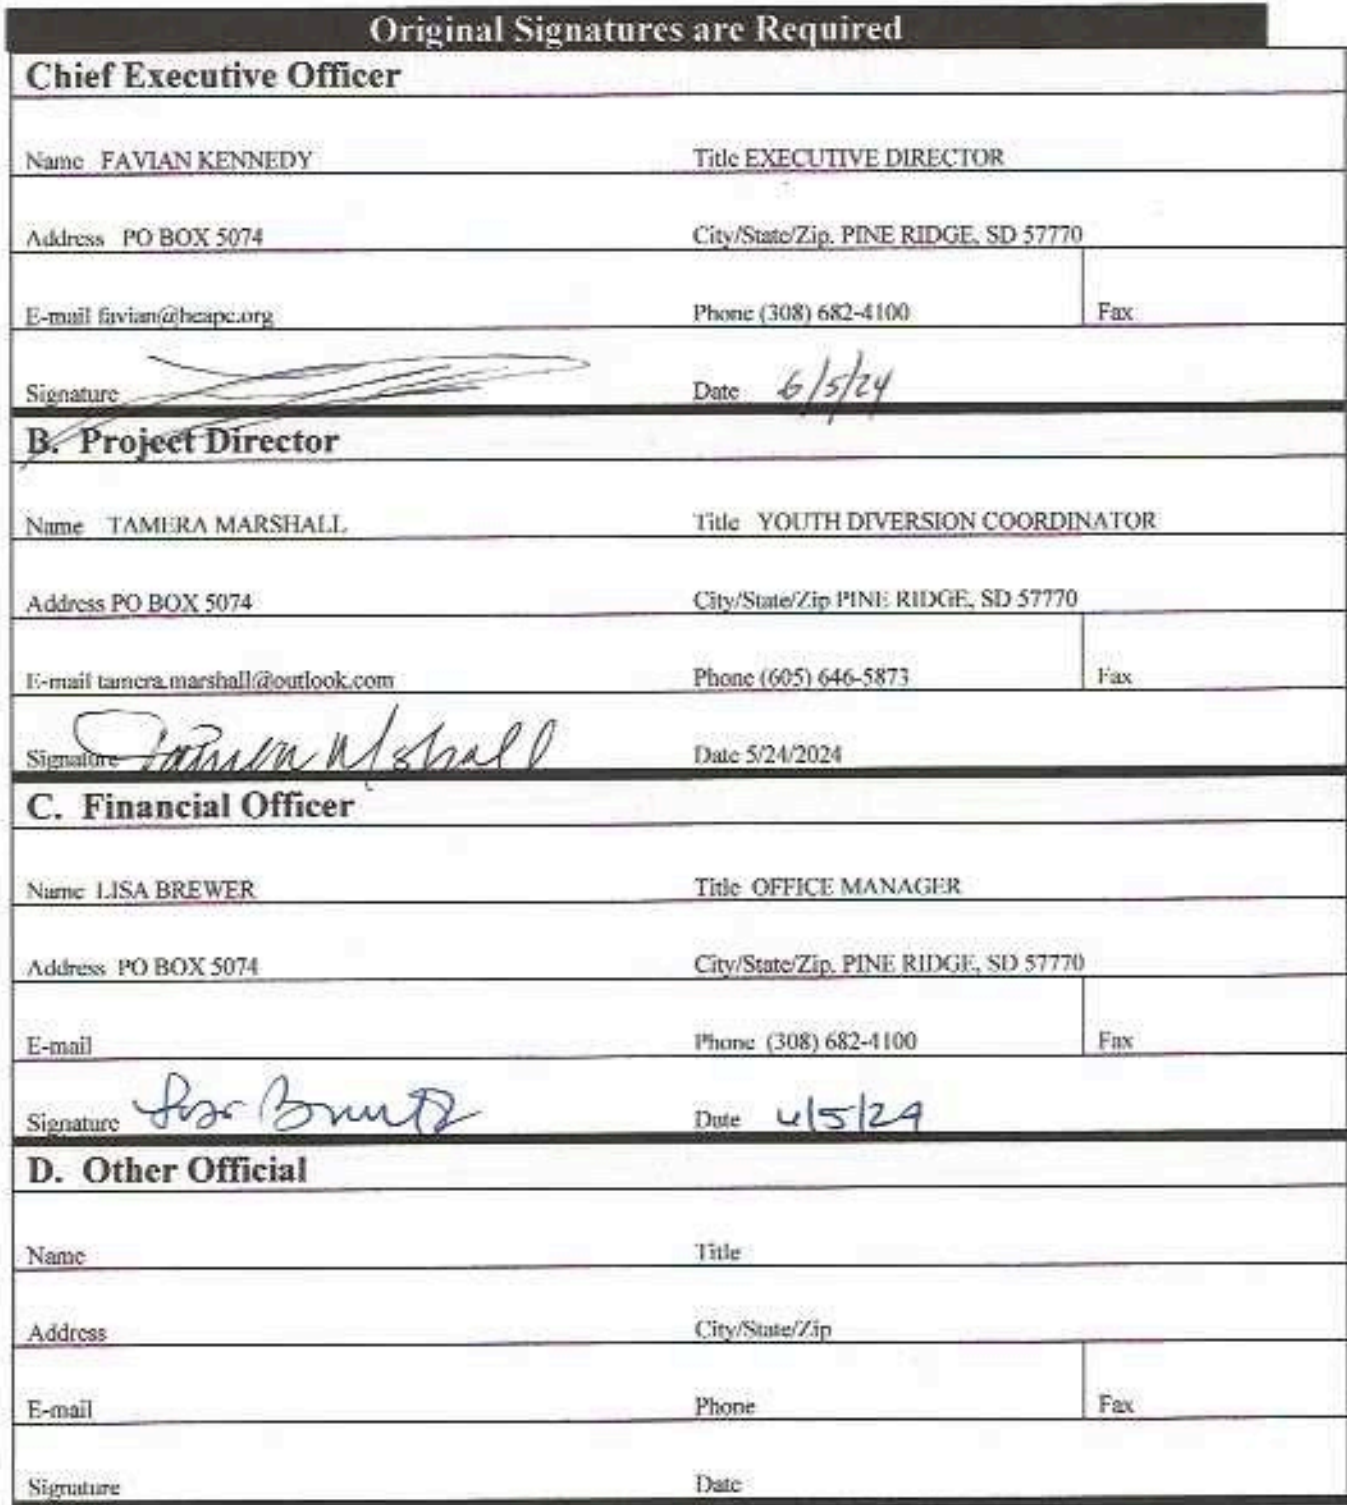 Original Signatures are Required
Chief Executive Officer
Name FAVIAN KENNEDY Title EXECUTIVE DIRECTOR
Address PO BOX 5074 City/State/Zip. PINE RIDGE, SD 57770
E-mail favian@heapc.org Phone (308) 682-4100 Fax
Signature Date 6/5/24
B. Project Director
Name TAMERA MARSHALL Title YOUTH DIVERSION COORDINATOR
Address PO BOX 5074 City/State/Zip PINE RIDGE, SD 57770
E-mail tamera.marshall@outlook.com Phone (605) 646-5873 Fax
Signature Date 5/24/2024
C. Financial Officer
Name LISA BREWER Title OFFICE MANAGER
Address PO BOX 5074 City/State/Zip. PINE RIDGE, SD 57770
E-mail Phone (308) 682-4100 Fax
Signature Date
D. Other Official
Name Title
Address City/State/Zip
E-mail Phone Fax
Signature Date